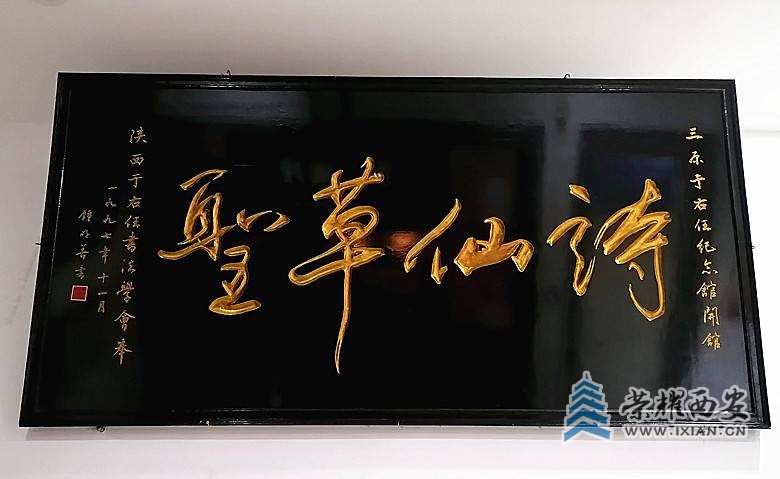 三原于右任纪念館開館
詩仙草聖
陕西于右任書法學會奉
一九九七年十一月
鍾明善書
荣耀西安
WWW.IXIAN.CN